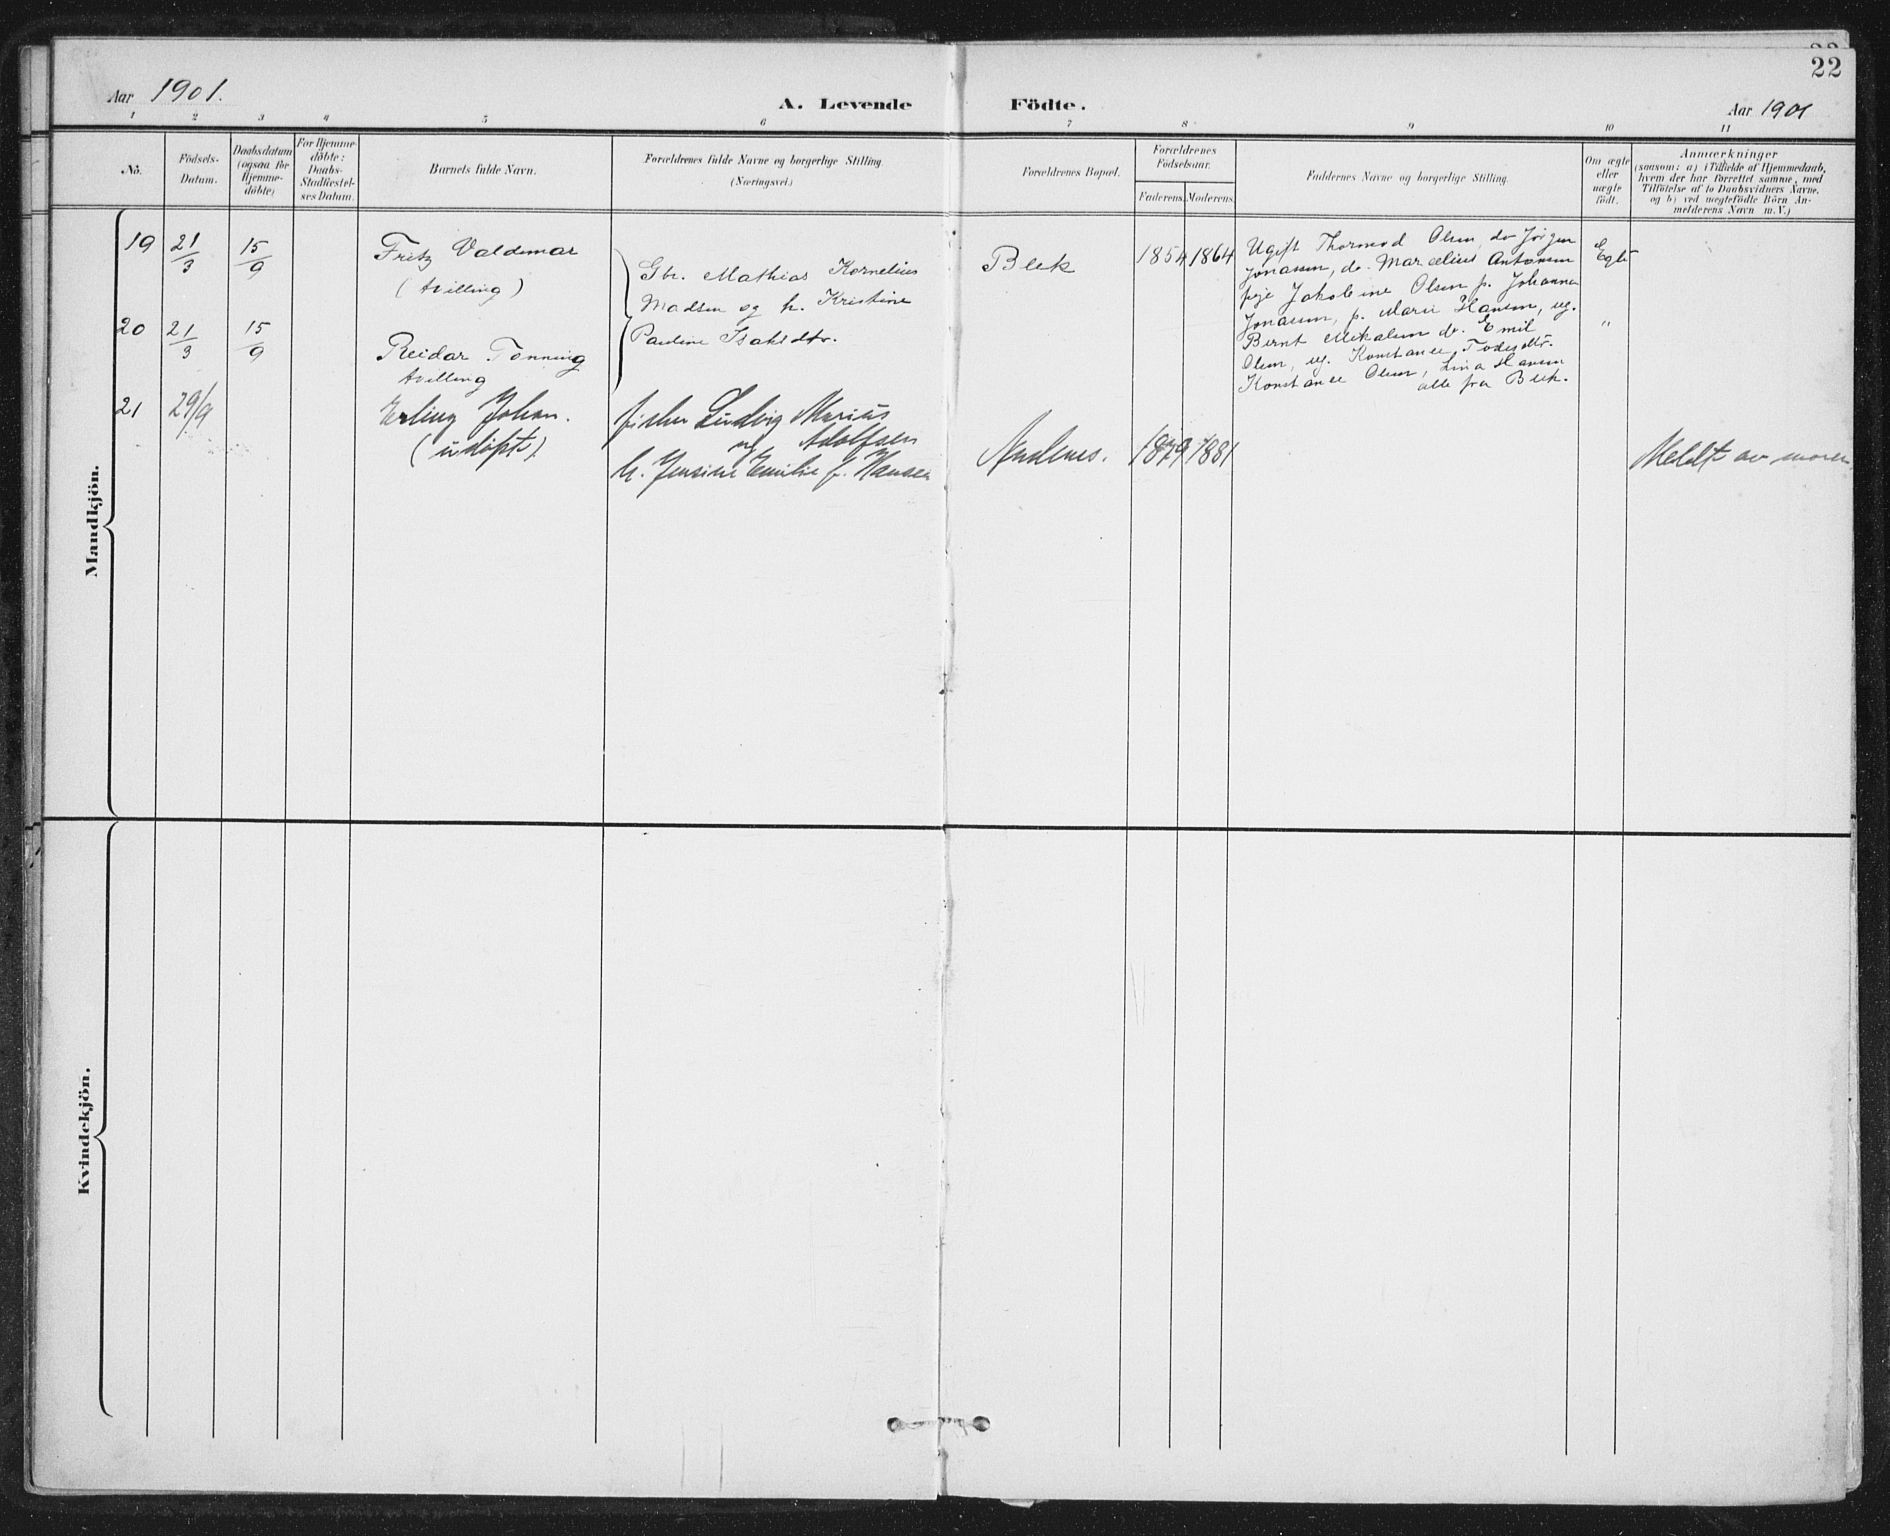 22
Aar 1901.
A. Levende Födte.
Aar 1901
1 2 3 4 5 6 7 8 9 10 11
No.
Födsels-
Datum.
Daabsdatum
(ogsaa for
Hjemme-
döbte)
For Hjemme-
döbte:
Daabs-
Stadfæstel-
ses Datum.
Barnets fulde Navn.
Forældrenes fulde Navne og borgerlige Stilling.
(Næringsvei.)
Forældrenes Bopæl.
Forældrenes
Födselsaar.
Faderens. Moderens.
Faddernes Navne og borgerlige Stilling.
Om ægte
eller
uægte
födt.
Anmærkninger
(saasom: a) i Tilfælde af Hjemmedaab,
hvem der har forrettet samme, med
Tilföielse af to Daabsvidners Navne,
og b) ved uægtefödte Börn An-
melderens Navn m. V.)
Mandkjön.
19 21/3 15/9 Fritz Valdemar
(tvilling)
Gbr. Mathias Kornelius
Madsen og h. Kristine
Pauline Isaksdtr.
Bleik 1854 1864
Ugift Thormod Olsen, do Jørgen
Jonassen, do. Marcelius Antonsen
pige Jakobine Olsen p. Johanna
Jonassen, p. Marie Hansen, ug.
Bernt Mikalsen do. Emil
Olsen, ug. Konstanse
Konstanse Olsen, Lina Hansen
alle fra Bleik.
Egte
20 21/3 15/9 Reidar Tønning
tvilling
"
21 29/9 Erling Johan.
(udøpt)
fisker Ludvig Marius
Adolfsen
og
h. Jensine Emilie f. Hansen
Andenes. 1879 1881
Meldt av moren
Kvindekjön.